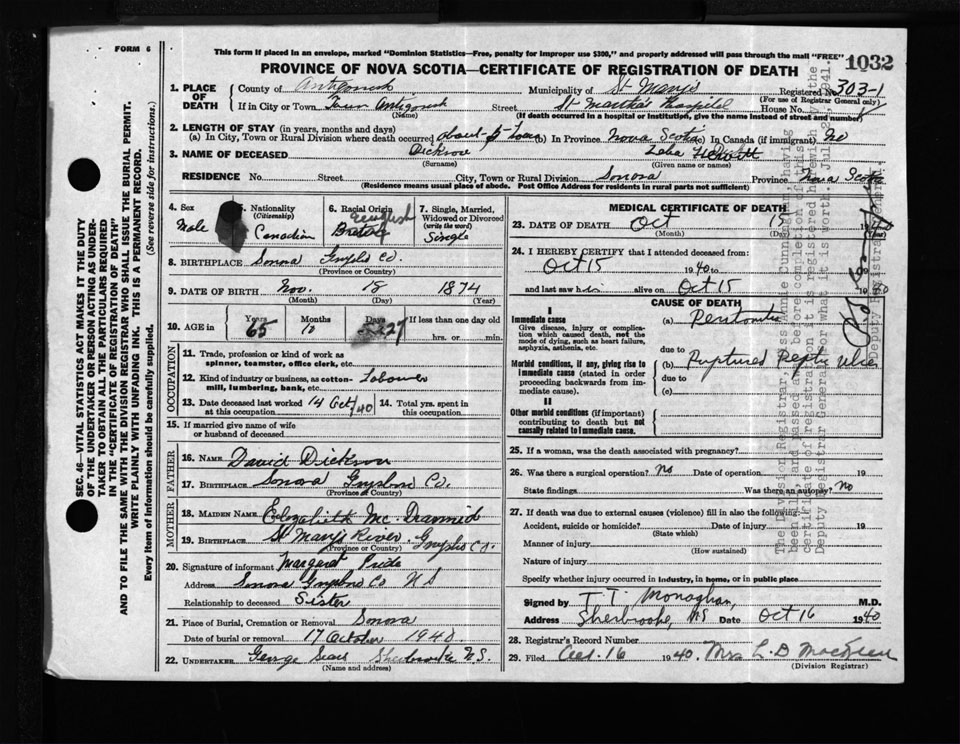 FORM 6
This form if placed in an envelope, marked "Dominion Statistics—Free, penalty for improper use $300," and properly addressed will pass through the mail "FREE"
1032
PROVINCE OF NOVA SCOTIA—CERTIFICATE OF REGISTRATION OF DEATH
1. PLACE OF DEATH County of Antigonish Municipality of St. Mary's Registered No. 303-1
(For use of Registrar General only)
If in City or Town Town Antigonish Street St Martha's Hospital House No.
(Name) (If death occurred in a hospital or institution, give the name instead of street and number)
2. LENGTH OF STAY (in years, months and days)
(a) In City, Town or Rural Division where death occurred about (b) In Province Nova Scotia In Canada (if immigrant) No
3. NAME OF DECEASED Dickson
(Surname) (Given name or names)
RESIDENCE No. Street City, Town or Rural Division Sonora Province Nova Scotia
(Residence means usual place of abode. Post Office Address for residents in rural parts not sufficient)
4. Sex Male
5. Nationality (Citizenship) Canadian
6. Racial Origin English
7. Single, Married, Widowed or Divorced (write the word) Single
8. BIRTHPLACE Sonora Guysboro Co.
(Province or Country)
9. DATE OF BIRTH Nov. 18 1874
(Month) (Day) (Year)
10. AGE in Years 65 Months Days 27 If less than one day old
hrs. or min.
OCCUPATION
11. Trade, profession or kind of work as spinner, teamster, office clerk, etc.
12. Kind of industry or business, as cotton-mill, lumbering, bank, etc. Labourer
13. Date deceased last worked at this occupation 14 Oct/40 14. Total yrs. spent in this occupation
15. If married give name of wife or husband of deceased
FATHER
16. NAME David Dickson
17. BIRTHPLACE Sonora Guysboro Co.
(Province or Country)
MOTHER
18. MAIDEN NAME Elizabeth
19. BIRTHPLACE St Mary's River Guysboro Co.
(Province or Country)
20. Signature of informant Margaret Pride
Address Sonora Guysboro Co N S
Relationship to deceased Sister
21. Place of Burial, Cremation or Removal Sonora
Date of burial or removal 17 October 1940.
22. UNDERTAKER George Sherbrooke N.S.
(Name and address)
MEDICAL CERTIFICATE OF DEATH
23. DATE OF DEATH Oct 15 1940
(Month) (Day) (Year)
24. I HEREBY CERTIFY that I attended deceased from:
Oct 15 1940 to
and last saw him alive on Oct 15 1940
CAUSE OF DEATH
I
Immediate cause
Give disease, injury or complication which caused death, not the mode of dying, such as heart failure, asphyxia, asthenia, etc.
(a) Peritonitis
due to
Morbid conditions, if any, giving rise to immediate cause (stated in order proceeding backwards from immediate cause).
(b) Ruptured Peptic Ulcer
due to
(c)
II
Other morbid conditions (if important) contributing to death but not causally related to immediate cause.
25. If a woman, was the death associated with pregnancy?
26. Was there a surgical operation? No Date of operation 19
State findings Was there an autopsy? No
27. If death was due to external causes (violence) fill in also the following:
Accident, suicide or homicide? Date of injury 19
(State which)
Manner of injury
(How sustained)
Nature of injury
Specify whether injury occurred in industry, in home, or in public place
Signed by T. T. Monaghan, M.D.
Address Sherbrooke, NS Date Oct 16 1940
28. Registrar's Record Number
29. Filed Oct. 16 1940. Mrs L. D
(Division Registrar)
SEC. 46—VITAL STATISTICS ACT MAKES IT THE DUTY
OF THE UNDERTAKER OR PERSON ACTING AS UNDER-
TAKER TO OBTAIN ALL THE PARTICULARS REQUIRED
IN THE "CERTIFICATE OF REGISTRATION OF DEATH"
AND TO FILE THE SAME WITH THE DIVISION REGISTRAR WHO SHALL ISSUE THE BURIAL PERMIT.
WRITE PLAINLY WITH UNFADING INK. THIS IS A PERMANENT RECORD.
Every item of information should be carefully supplied. (See reverse side for instructions.)
The Division Registrar, Miss Annie Cunningham, having
Deputy Registrar General